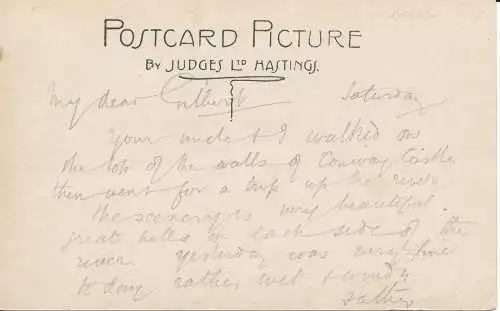 POSTCARD PICTURE
BY JUDGES LTD HASTINGS.
My dear Gilbert Saturday
Your uncle & I walked on
the top of the walls of Conway Castle
then went for a trip up the river
the scenery is very beautiful
great hills on each side of the
river. Yesterday was very fine
to day rather wet & windy
Father